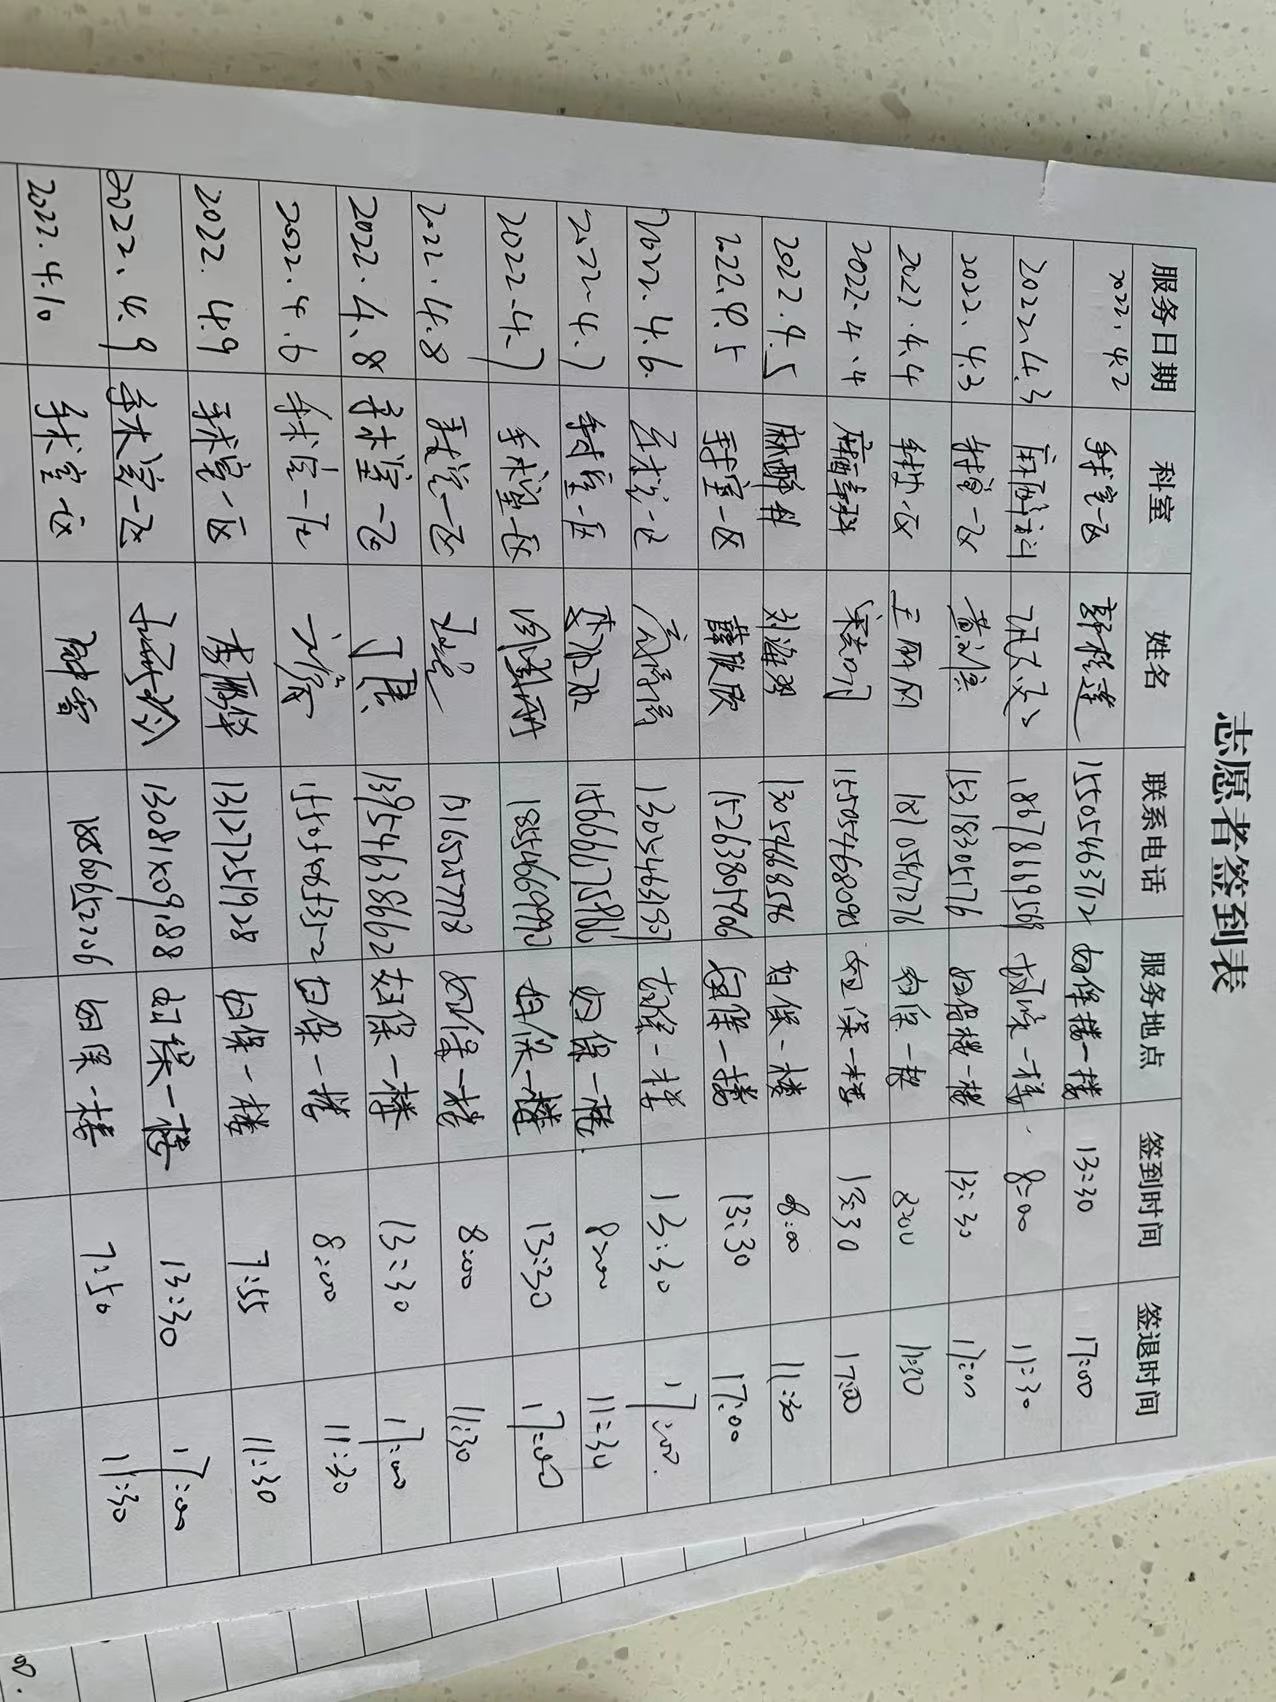 志愿者签到表
服务日期 科室 姓名 联系电话 服务地点 签到时间 签退时间
2022.4.2 手术室一区 15505463712 妇保楼一楼 13:30 17:00
2022.4.3 麻醉科 18678169568 妇保一楼 8:00 11:30
2022.4.3 手术室一区 15318305176 妇保楼一楼 13:30 17:00
2022.4.4 手术室一区 王丽丽 18710567276 妇保一楼 8:00 11:30
2022.4.4 麻醉科 15505468098 妇保一楼 13:30 17:00
2022.4.5 麻醉科 刘海翠 13054668556 妇保一楼 8:00 11:30
2022.4.5 手术室一区 薛欣欣 15263805906 妇保一楼 13:30 17:00
2022.4.6 手术室一区 妇保一楼 13:30 17:00.
2022.4.7 手术室一区 妇保一楼. 8:00 11:30
2022.4.7 手术室一区 18554669992 妇保一楼 13:30 17:00
2022.4.8 手术室一区 妇保一楼 8:00 11:30
2022.4.8 手术室一区 丁晨 13954638662 妇保一楼 13:30 17:00
2022.4.6 手术室一区 妇保一楼 8:00 11:30
2022.4.9 手术室一区 李丽华 13127251928 妇保一楼 7:55 11:30
2022.4.9 手术室一区 妇保一楼 13:30 17:00
2022.4.10 手术室一区 18560652206 妇保一楼 7:50 11:30